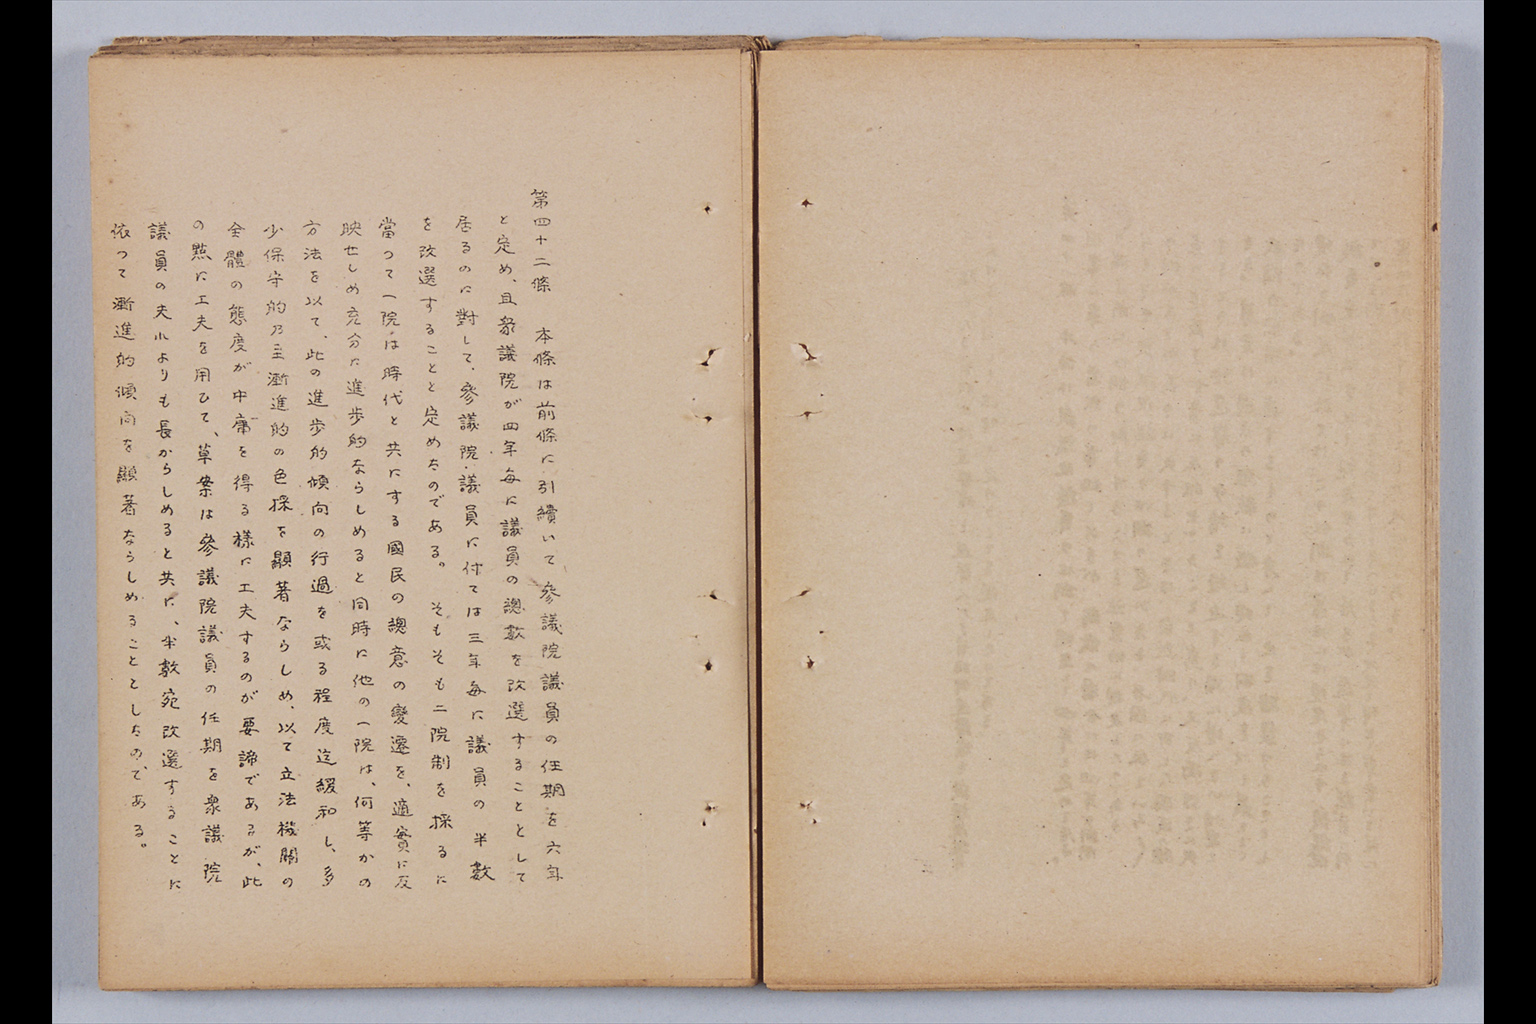 第四十二條　本條は前條に引續いて參議院議員の任期を六年
と定め、且衆議院が四年每に議員の總數を改選することとして
居るのに對して、參議院議員に付ては三年每に議員の半數
を改選することと定めたのである。　そもそも二院制を採るに
當つて一院は時代と共にする國民の總意の變遷を、適實に反
映せしめ充分に進步的ならしめると同時に他の一院は、何等かの
方法を以て、此の進步的傾向の行過を或る程度迄緩和し、多
少保守的乃至漸進的の色採を顯著ならしめ、以て立法機關の
全體の態度が中庸を得る樣に工夫するのが要諦であるが、此
の點に工夫を用ひて、草案は參議院議員の任期を衆議院
議員の夫れよりも長からしめると共に、半數宛改選することに
依つて漸進的傾向を顯著ならしめることとしたのである。